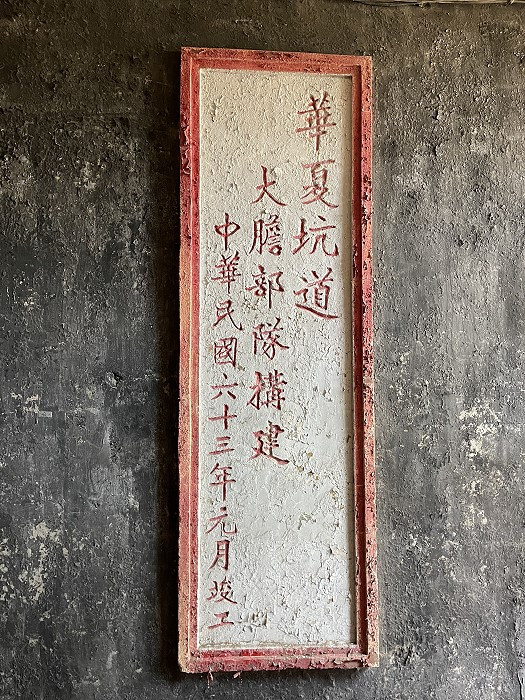 華夏坑道
大膽部隊構建
中華民國六十三年元月竣工